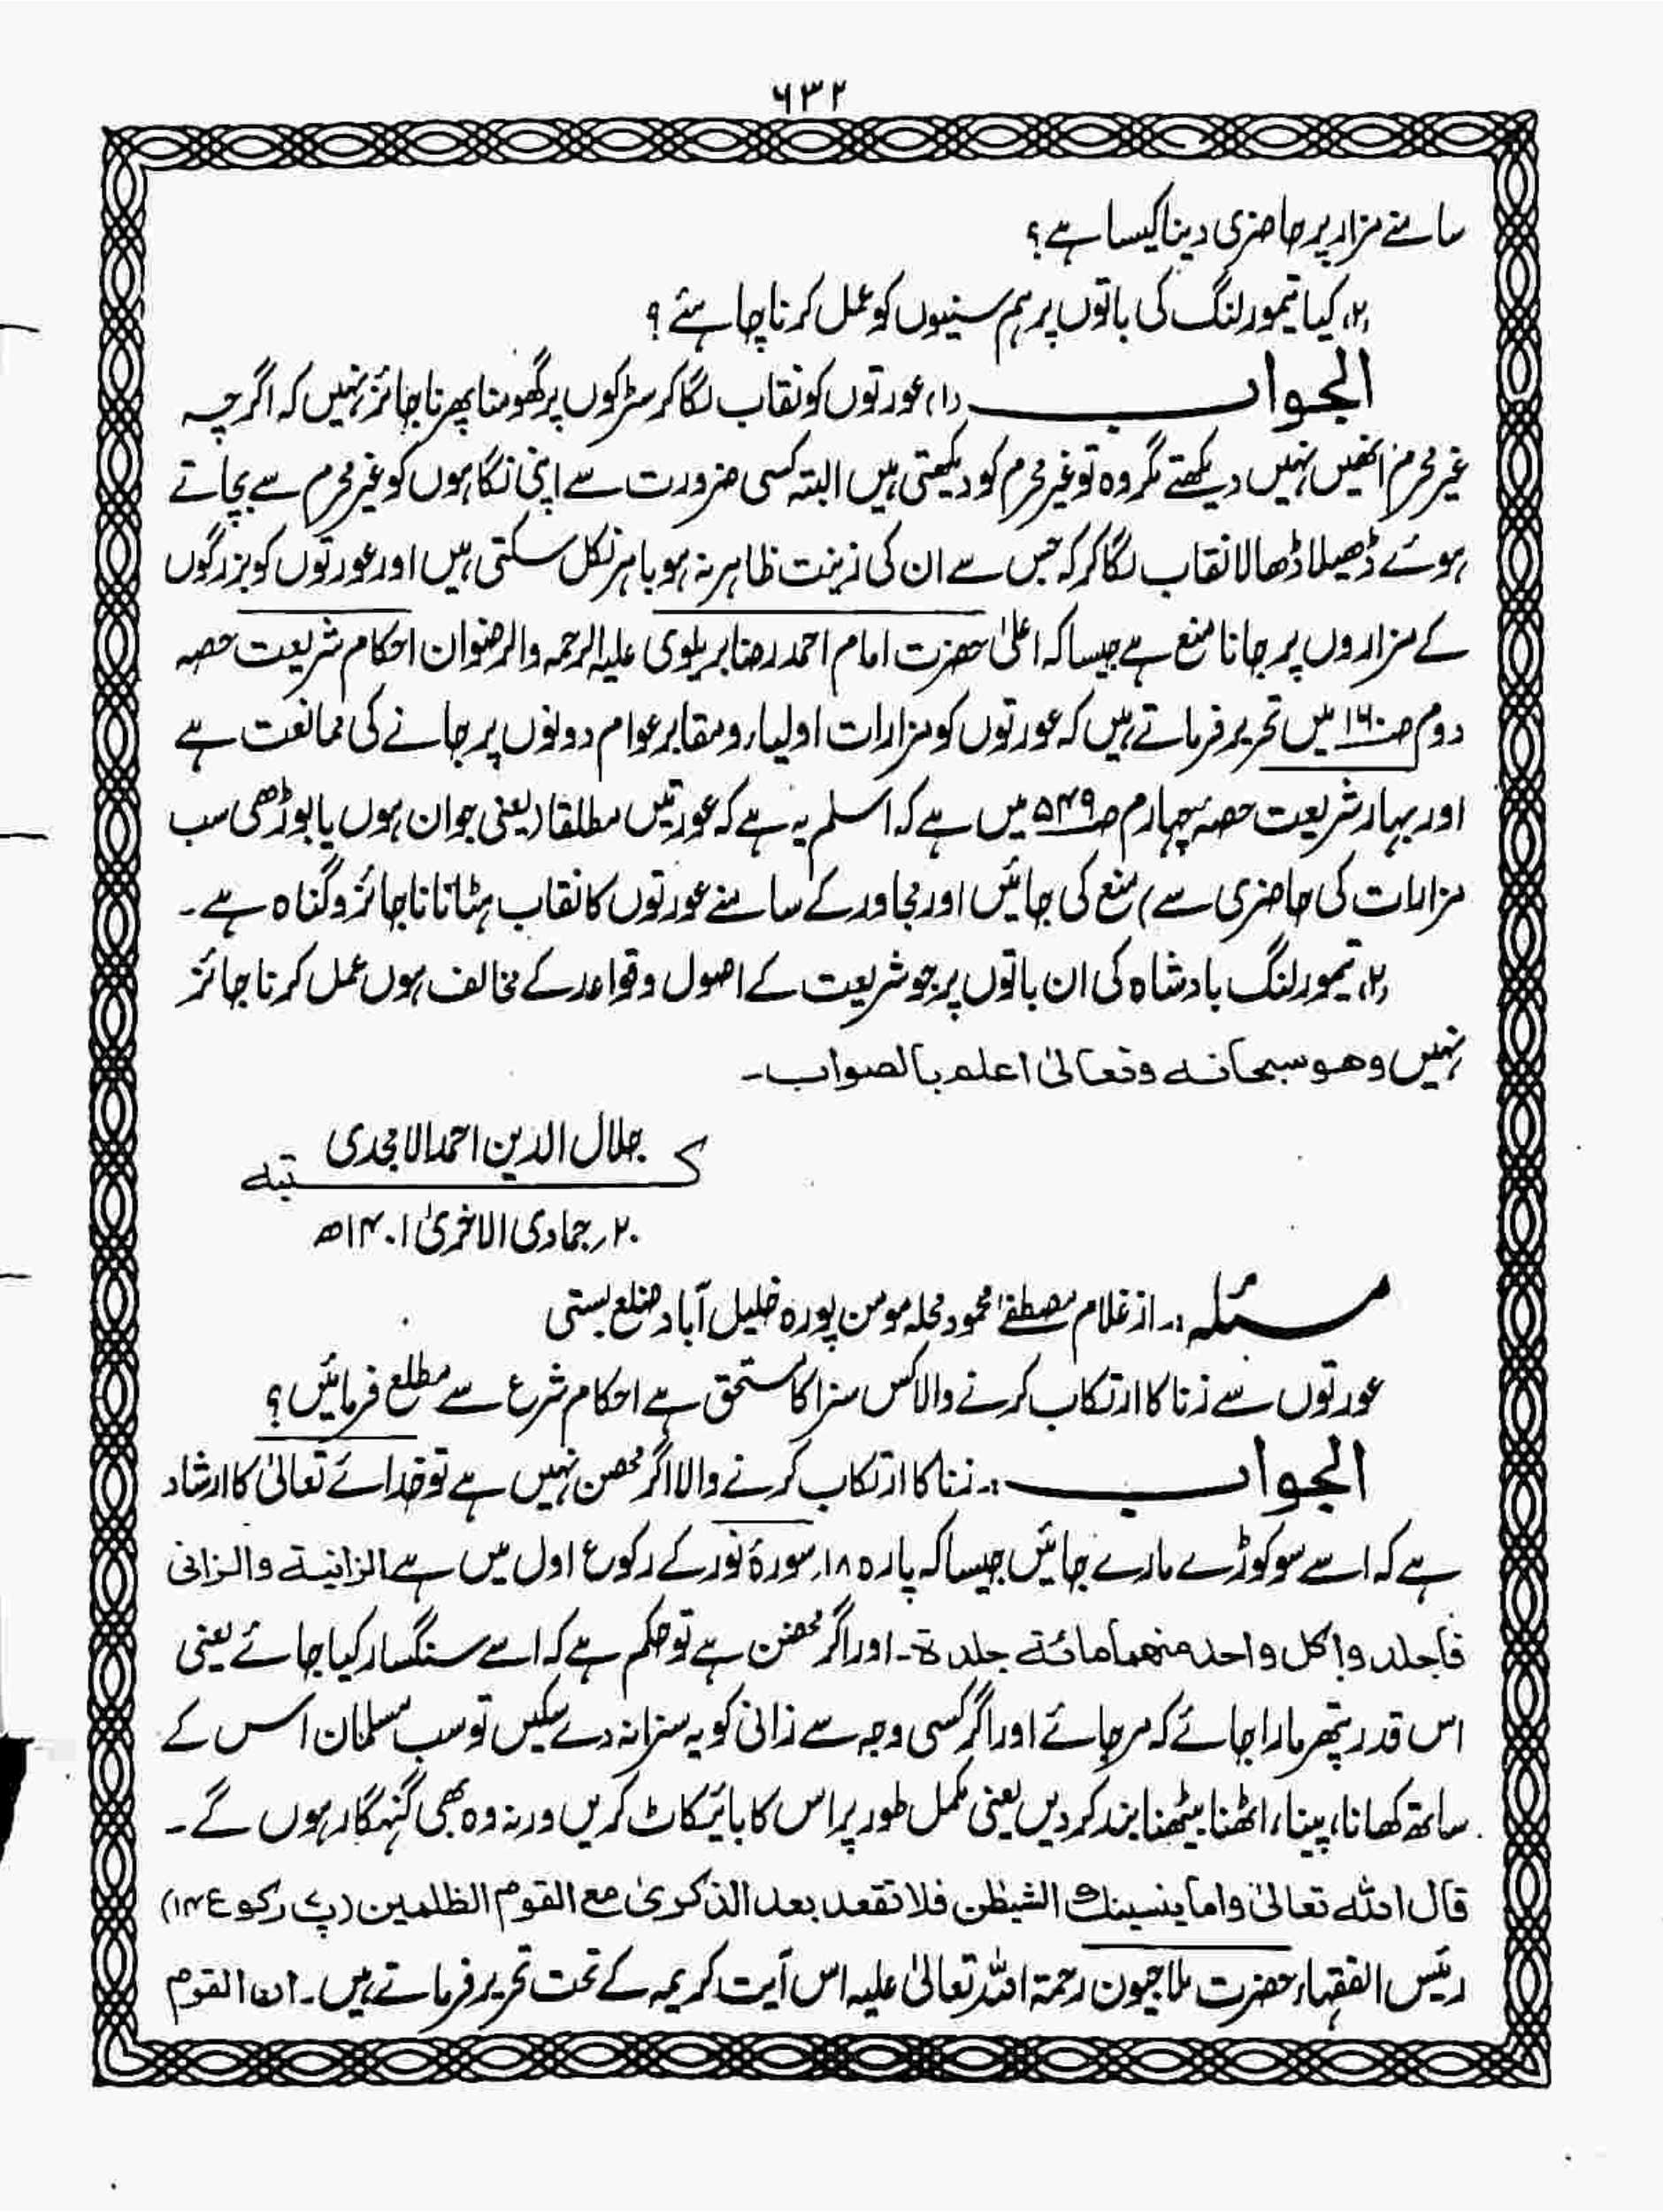 ۶۳۲
سامنے مزار پر حاضری دینا کیسا ہے؟
(۲) کیا تیمور لنگ کی باتوں پر ہم سنیوں کو عمل کرنا چاہئے؟
الجواب (۱) عورتوں کو نقاب لگا کر سڑکوں پر گھومنا پھرنا جائز نہیں کہ اگرچہ
غیر محرم انھیں نہیں دیکھتے مگر وہ تو غیر محرم کو دیکھتی ہیں البتہ کسی ضرورت سے اپنی نگاہوں کو غیر محرم سے بچاتے
ہوئے ڈھیلا ڈھالا نقاب لگا کر کہ جس سے ان کی زینت ظاہر نہ ہو باہر نکل سکتی ہیں اور عورتوں کو بزرگوں
کے مزاروں پر جانا منع ہے جیسا کہ اعلیٰ حضرت امام احمد رضا بریلوی علیہ الرحمہ والرضوان احکام شریعت حصہ
دوم صـ۱۶۰ میں تحریر فرماتے ہیں کہ عورتوں کو مزارات اولیاء و مقابر عوام دونوں پر جانے کی ممانعت ہے
اور بہار شریعت حصہ چہارم صـ۵۴۹ میں ہے کہ اسلم یہ ہے کہ عورتیں مطلقا (یعنی جوان ہوں یا بوڑھی سب
مزارات کی حاضری سے) منع کی جائیں اور مجاور کے سامنے عورتوں کا نقاب ہٹانا ناجائز و گناہ ہے۔
(۲) تیمور لنگ بادشاہ کی ان باتوں پر جو شریعت کے اصول و قواعد کے مخالف ہوں عمل کرنا جائز
نہیں وھو سبحانہ وتعالیٰ اعلم بالصواب۔
کتبہ جلال الدین احمد الامجدی
۲۰؍ جمادی الاخریٰ ۱۴۰۱ھ
مسئلہ:۔ از غلام مصطفےٰ محمود محلہ مومن پورہ خلیل آباد ضلع بستی
عورتوں سے زنا کا ارتکاب کرنے والا کس سزا کا مستحق ہے احکام شرع سے مطلع فرمائیں؟
الجواب:۔ زنا کا ارتکاب کرنے والا اگر محصن نہیں ہے تو خدائے تعالیٰ کا ارشاد
ہے کہ اسے سو کوڑے مارے جائیں جیسا کہ پارہ ۱۸؍ سورۂ نور کے رکوع اول میں ہے الزانیة والزانی
فاجلدوا کل واحد منھما مائة جلدة۔ اور اگر محصن ہے تو حکم ہے کہ اسے سنگسار کیا جائے یعنی
اس قدر پتھر مارا جائے کہ مر جائے اور اگر کسی وجہ سے زانی کو یہ سزا نہ دے سکیں تو سب مسلمان اس کے
ساتھ کھانا، پینا، اٹھنا بیٹھنا بند کر دیں یعنی مکمل طور پر اس کا بائیکاٹ کریں ورنہ وہ بھی گنہگار ہوں گے۔
قال اللہ تعالیٰ واما ینسینك الشیطٰن فلا تقعد بعد الذکریٰ مع القوم الظلمین (پ۷ رکوع ۱۴)
رئیس الفقہاء حضرت ملا جیون رحمة اللہ تعالیٰ علیہ اس آیت کریمہ کے تحت تحریر فرماتے ہیں۔ ان القوم